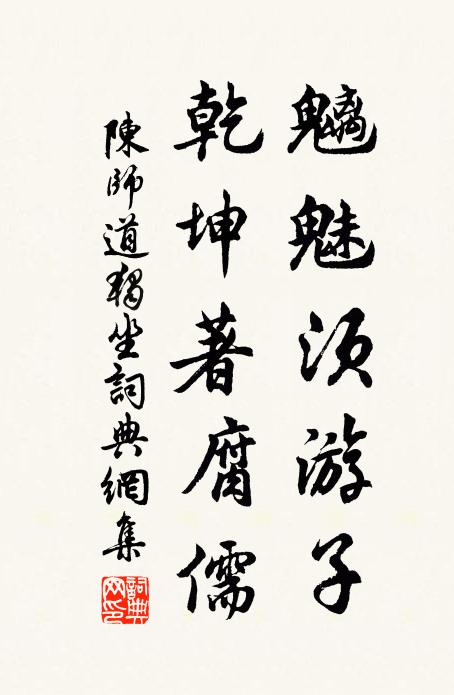 魑魅須游子
乾坤著腐儒
陳師道獨坐詞典網集
詞典網印